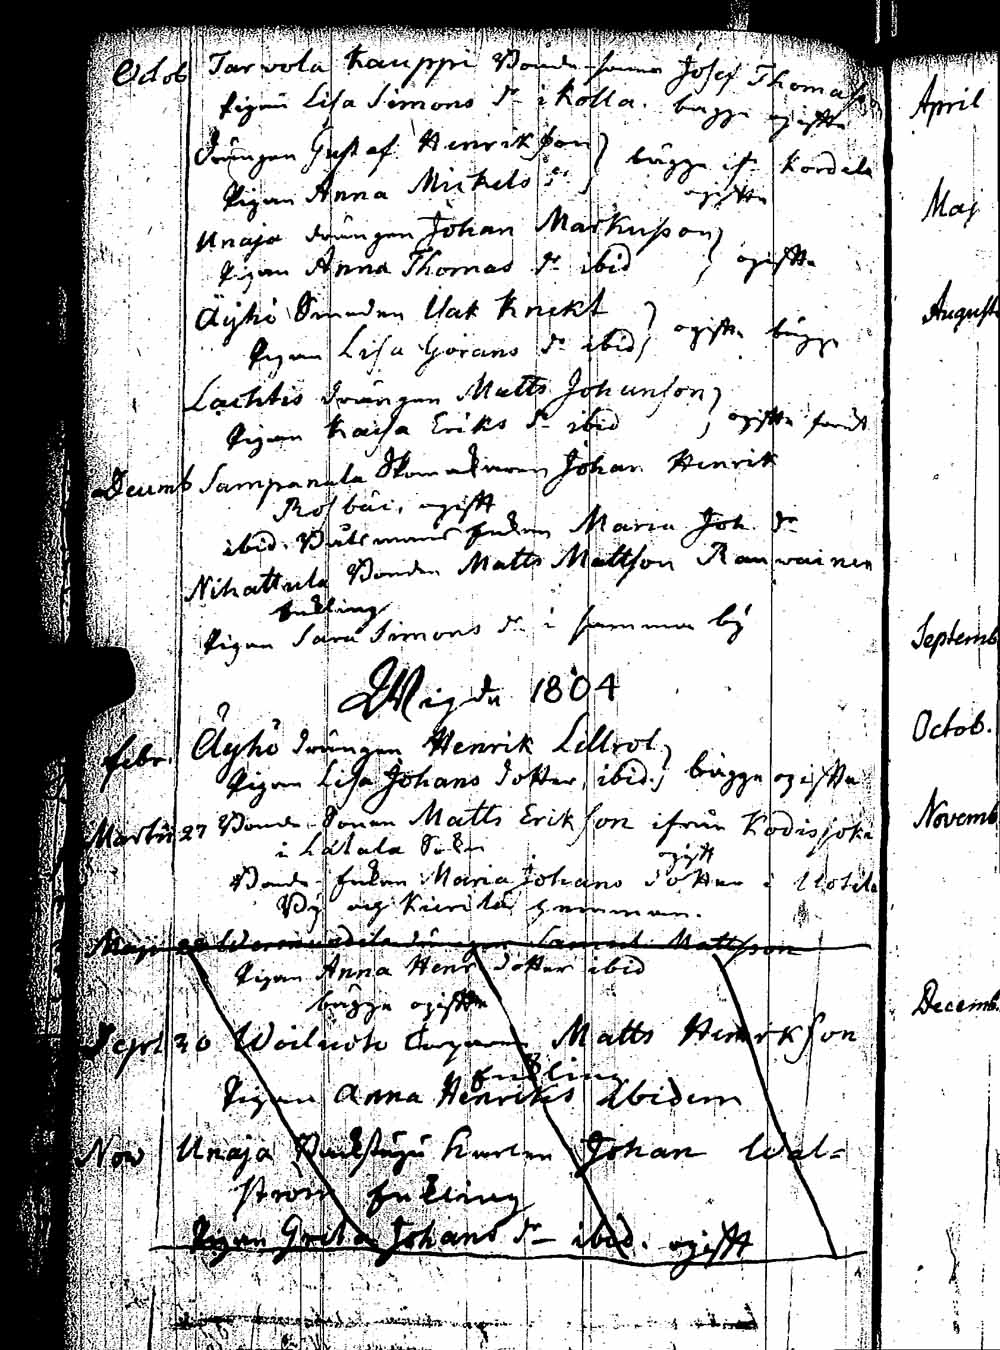 Octob Tarvola Kauppi Bonde sonen Josef Thomasson
Pigan Lisa Simons dr i Kolla. bägge ogifte
Drängen Gustaf Henriksson
Pigan Anna Mickels dr bägge ifr Kordela ogifte
Unaja drängen Johan Markusson
Pigan Anna Thomas dr ibid ogifte
Äyhö Smeden Isak Knekt
Pigan Lisa Görans dr ibid ogifte bägge
Lachtis drängen Matts Johansson
Pigan Kaisa Eriks dr ibid ogifte
Decemb Sampanala Skomakaren Johan Henrik
ogift
ibid. Enkan Maria Joh. dr
Nihattula Bonden Matts Mattson Rauvainen
Enkling
Pigan Sara Simons dr i samma by
Wigde 1804
Febr. Äyhö drängen Henrik Lillrot
Pigan Lisa Johans dotter, ibid. bägge ogifte
Martii 27 Bonde Sonen Matts Erikson ifrån Kodisjoki
i Lalala Sokn
ogift
Bonde Enkan Maria Johans dotter i Uotila
By og Kierila hemman.
Maji Drängen Samuel Mattsson
Pigan Anna Henr dotter ibid
bägge ogifte
Sept 30 Woiluoto Matts Henrikson
Enkling
Pigan Anna Henriks ibidem
Nov Unaja Karlen Johan Wal=
strom Enkling
Pigan Greta Johans dr ibid. ogift
April
Maj
August
Septemb
Octob.
Novemb
Decemb.